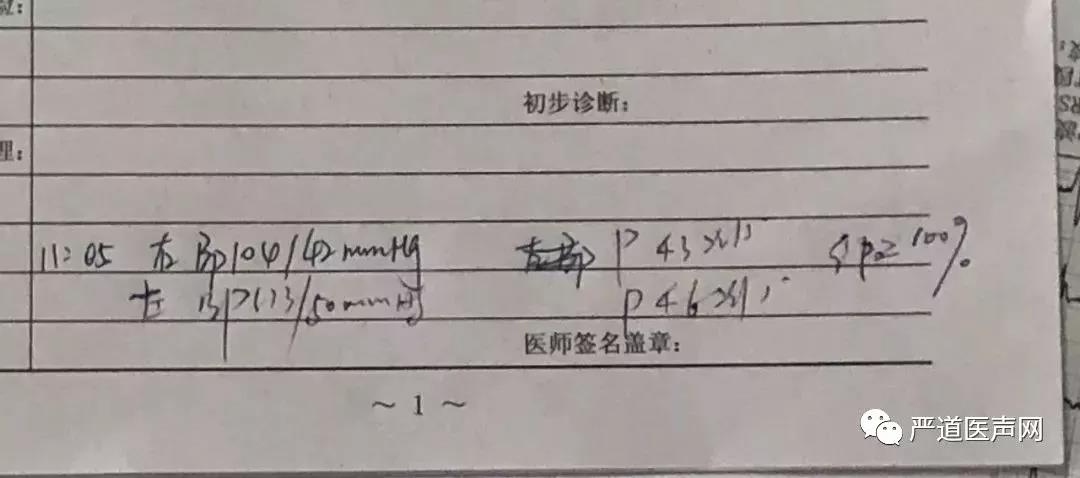 初步诊断：
理：
11:05 右 Bp 104/42mmHg P 43次/分 SpO2 100%
左 BP 113/50mmHg P 46次/分
医师签名盖章：
～ 1 ～
严道医声网